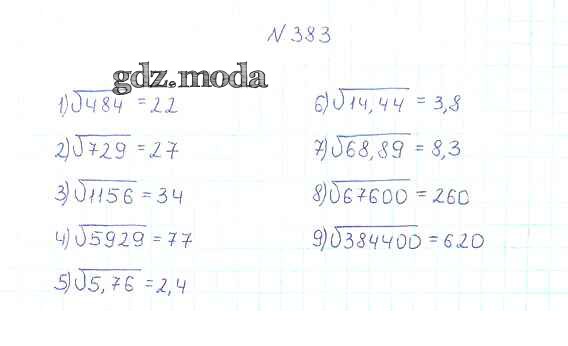 N 383
gdz.moda
1) √484 = 22
2) √729 = 27
3) √1156 = 34
4) √5929 = 77
5) √5,76 = 2,4
6) √14,44 = 3,8
7) √68,89 = 8,3
8) √67600 = 260
9) √384400 = 620